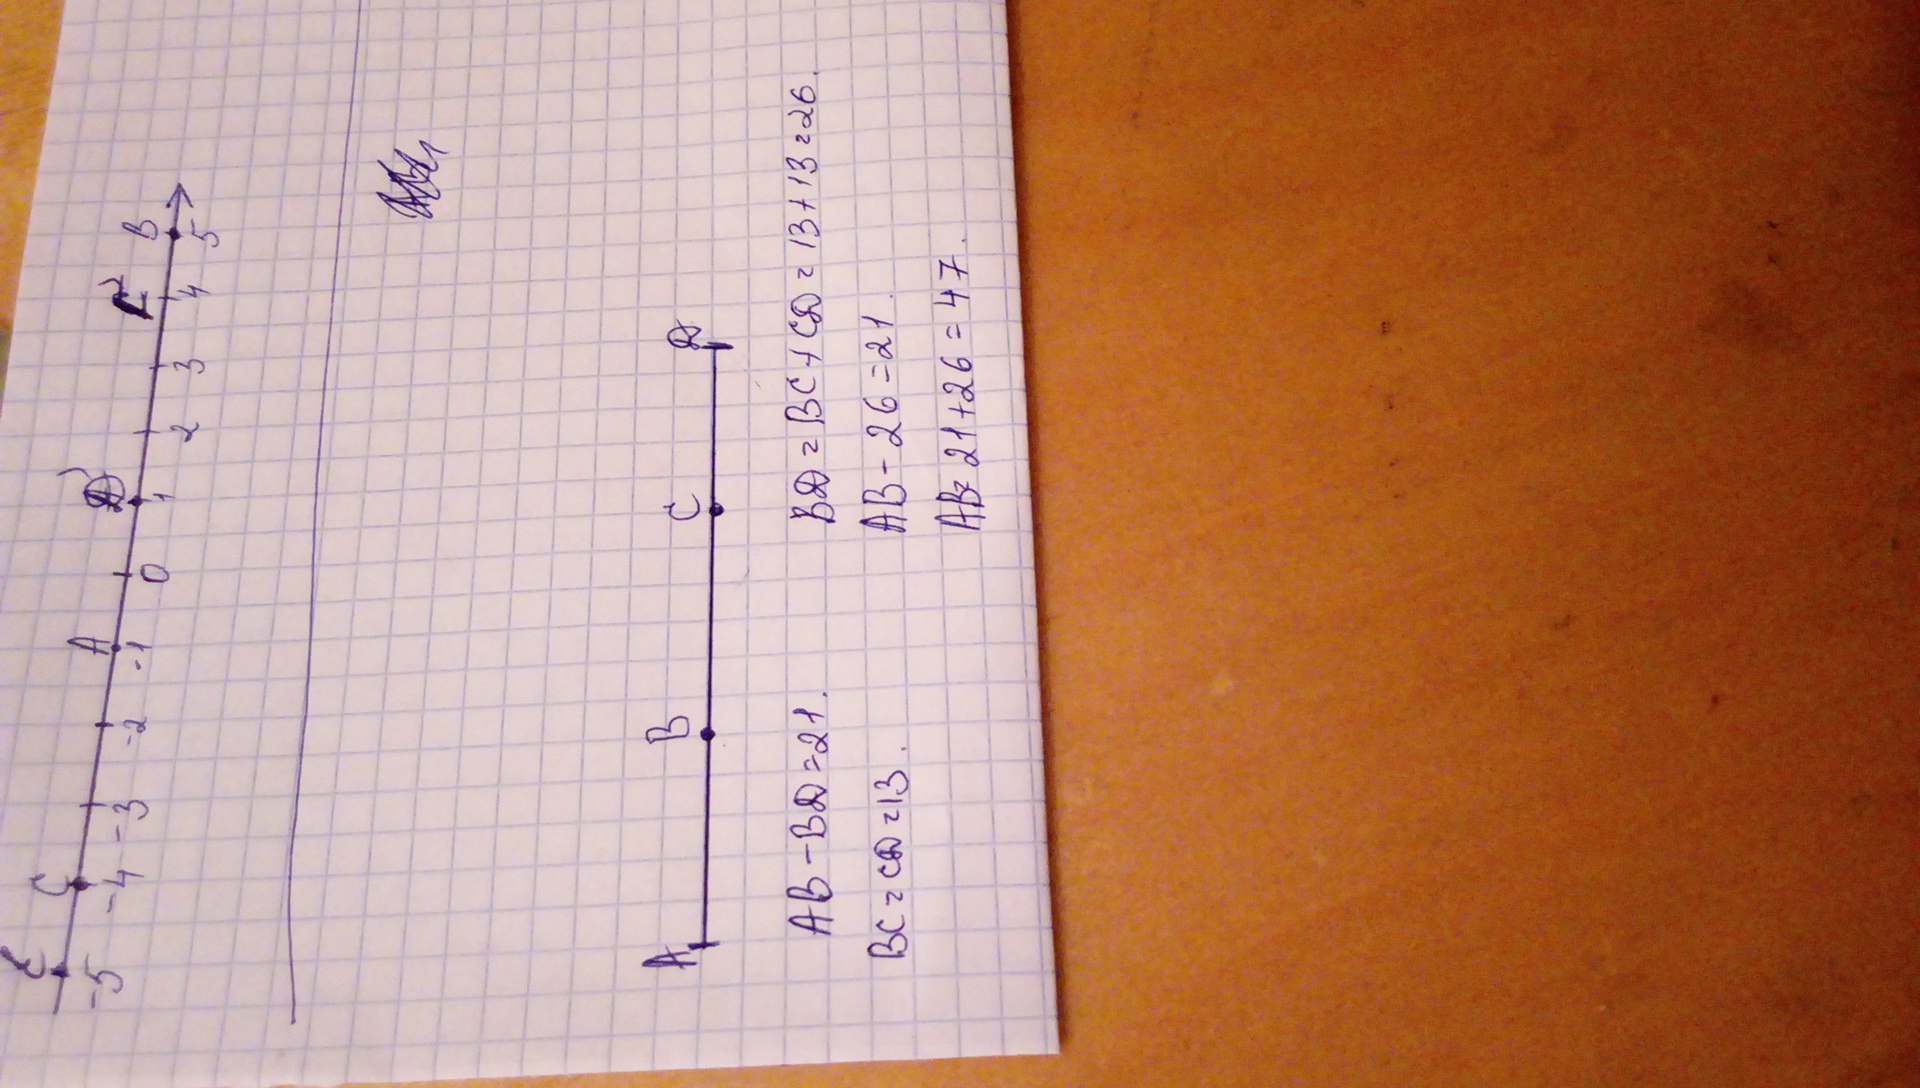 E C A D F B
-5 -4 -3 -2 -1 0 1 2 3 4 5
A B C D
AB - BD = 21.
BC = CD = 13.
BD = BC + CD = 13 + 13 = 26.
AB - 26 = 21.
AB = 21 + 26 = 47.